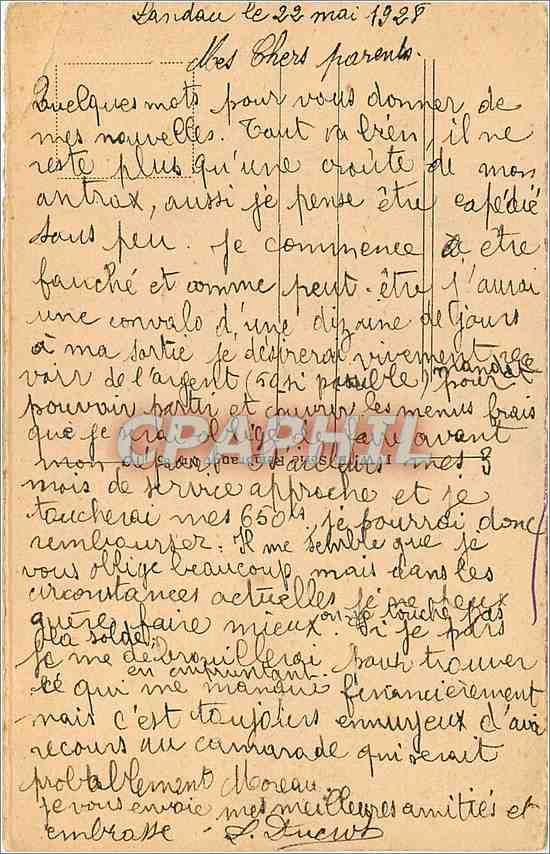 Landau le 22 mai 1928
Mes Chers parents.
Quelques mots pour vous donner de
mes nouvelles. Tout va bien, il ne
reste plus qu'une croûte de mon
antrax, aussi je pense être expédié
sous peu. Je commence à être
fauché et comme peut-être j'aurai
une convalo d'une dizaine de jours
à ma sortie je désirerai vivement rece
voir de l'argent (50 si possible) mandat pour
pouvoir partir et couvrir les menus frais
que je obligé de faire avant
mon D'ailleurs mes 8
mois de service approche et je
toucherai mes 650 je pourrai donc
rembourser. Il me semble que je
vous oblige beaucoup mais dans les
circonstances actuelles je ne peux
guère faire mieux. on ne touche pas
la solde. Si je pars
je me débrouillerai pour trouver
en empruntant
ce qui me manque financièrement
mais c'est toujours ennuyeux d'avoir
recours au camarade qui serait
probablement Moreau.
je vous envoie mes meilleures amitiés et
embrasse -
CPAPHIL